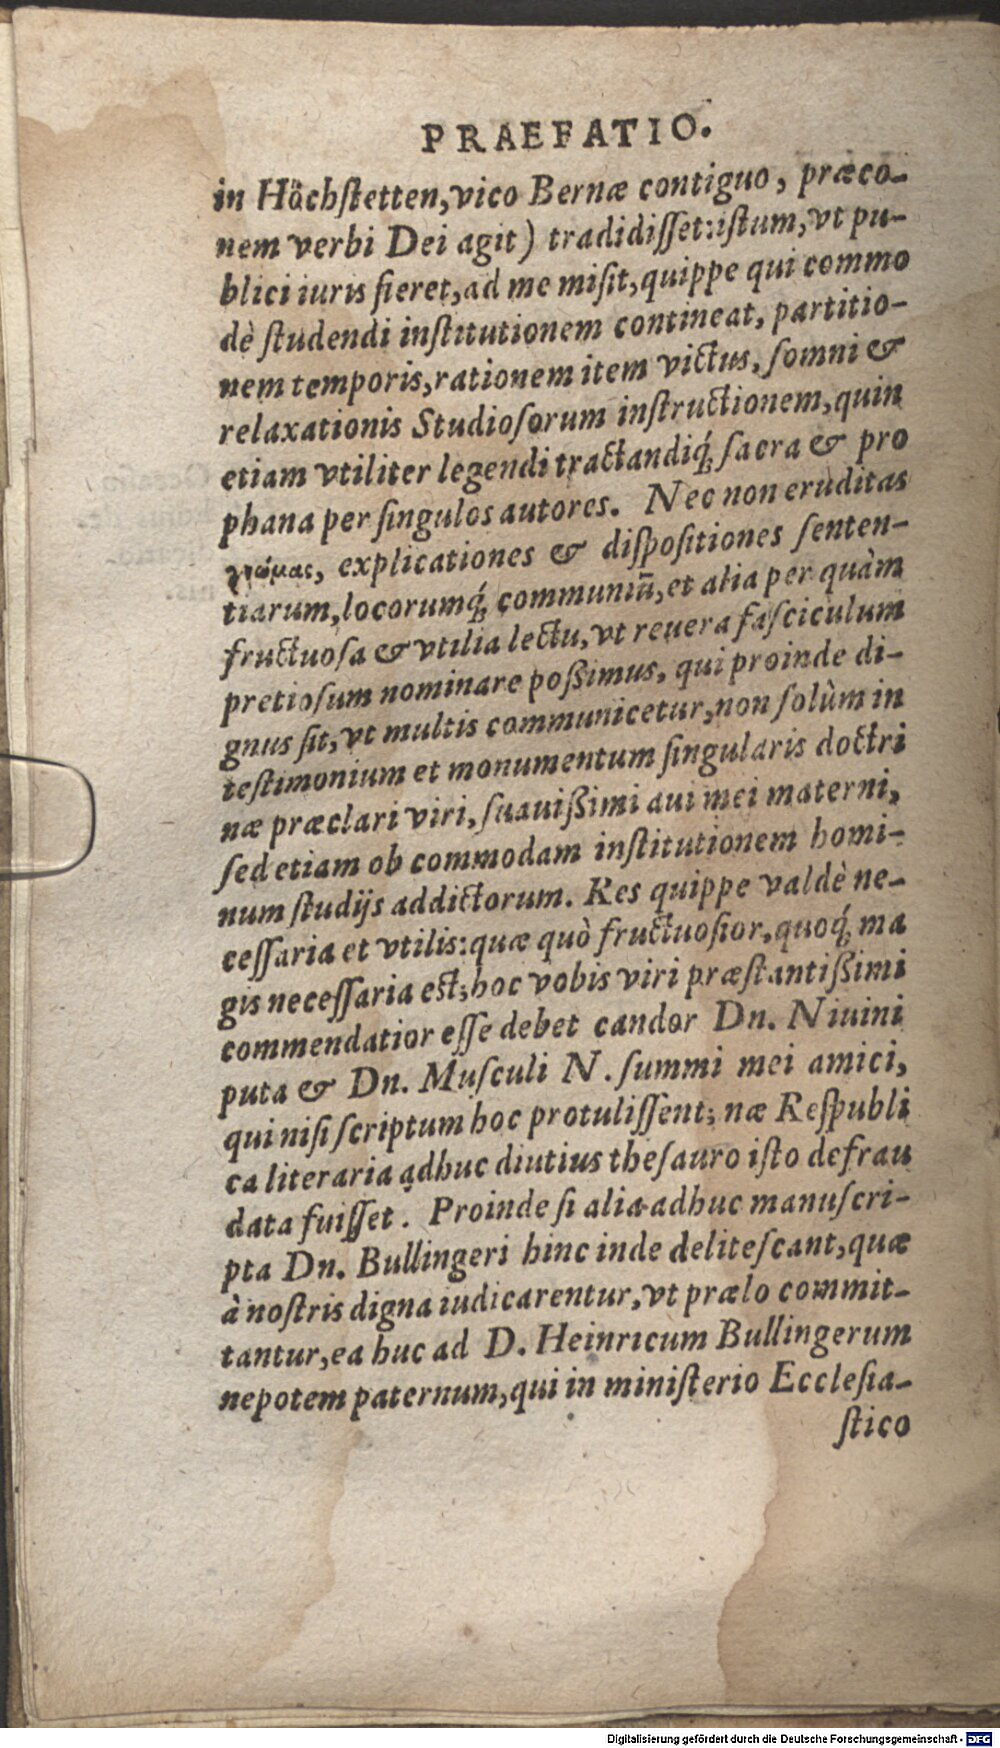 PRAEFATIO.
in Höchſtetten, vico Bernæ contiguo, præco-
nem verbi Dei agit) tradidiſſet: iſtum, vt pu-
blici iuris fieret, ad me miſit, quippe qui commo
dè ſtudendi inſtitutionem contineat, partitio-
nem temporis, rationem item victus, ſomni &
relaxationis Studioſorum inſtructionem, quin
etiam vtiliter legendi tractandiq́; ſacra & pro
phana per ſingulos autores. Nec non eruditas
γνώμας, explicationes & diſpoſitiones ſenten-
tiarum, locorumq́; communiũ, et alia per quàm
fructuoſa & vtilia lectu, vt reuera faſciculum
pretioſum nominare poßimus, qui proinde di-
gnus ſit, vt multis communicetur, non ſolùm in
teſtimonium et monumentum ſingularis doctri
næ præclari viri, ſuauißimi aui mei materni,
ſed etiam ob commodam inſtitutionem homi-
num ſtudijs addictorum. Res quippe valdè ne-
ceſſaria et vtilis: quæ quò fructuoſior, quoq́; ma
gis neceſſaria eſt; hoc vobis viri præſtantißimi
commendatior eſſe debet candor Dn. Niuini
puta & Dn. Muſculi N. ſummi mei amici,
qui niſi ſcriptum hoc protuliſſent; næ Reſpubli
ca literaria adhuc diutius theſauro iſto defrau
data fuiſſet. Proinde ſi alia adhuc manuſcri-
pta Dn. Bullingeri hinc inde deliteſcant, quæ
à noſtris digna iudicarentur, vt prælo commit-
tantur, ea huc ad D. Heinricum Bullingerum
nepotem paternum, qui in miniſterio Eccleſia-
ſtico
Digitalisierung gefördert durch die Deutsche Forschungsgemeinschaft - DFG